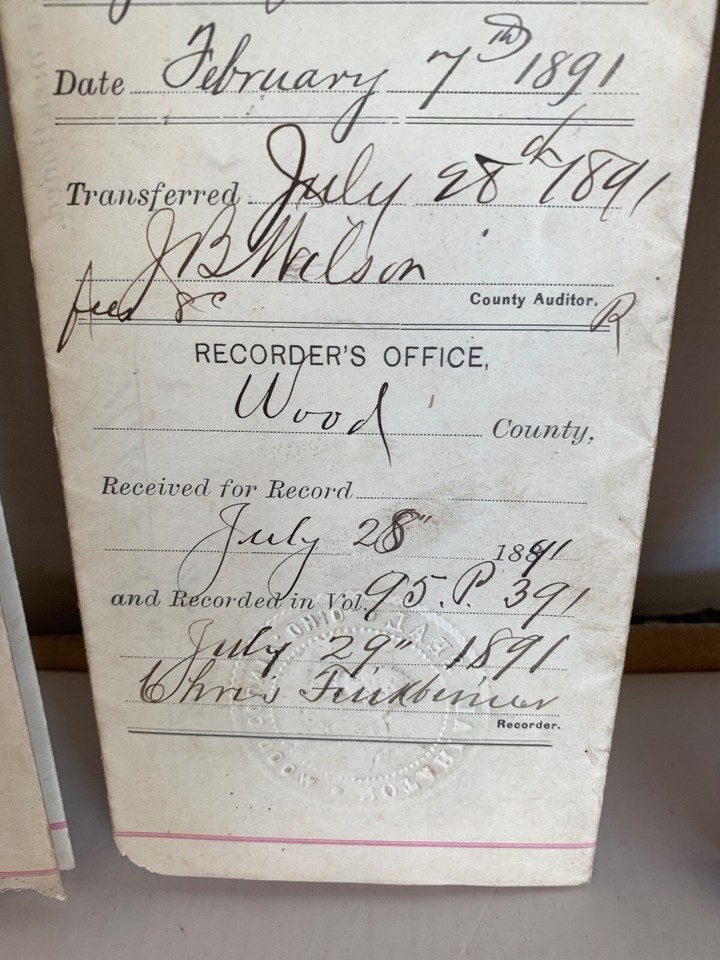 Date February 7th 1891
Transferred July 28th 1891
JB Wilson
County Auditor.
fees 8c R
RECORDER'S OFFICE,
Wood County,
Received for Record
July 28" 1891
and Recorded in Vol. 95. P. 391
July 29" 1891
Chris Finkbeiner
Recorder.
WOOD OHIO